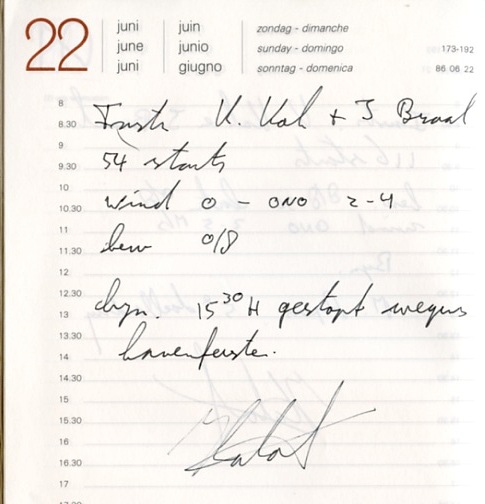 22
juni juin zondag - dimanche
june junio sunday - domingo 173-192
juni giugno sonntag - domenica 86 06 22
8
8.30 K. Kok + J Braal
9
9.30 54 starts
10
10.30 wind O - ONO 2-4
11
11.30 bew 0/8
12
12.30
13 15³⁰ H gestopt wegens
13.30
14 havenfeesten.
14.30
15
15.30
16
16.30
17